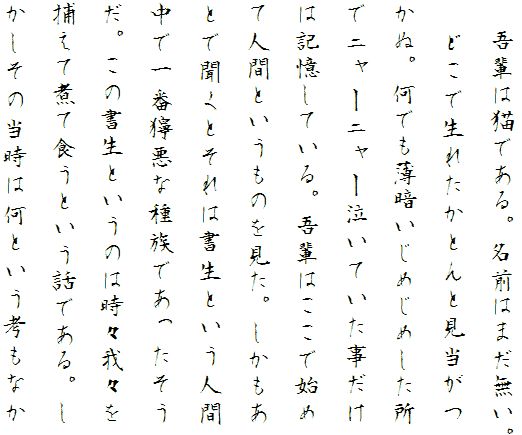 吾輩は猫である。名前はまだ無い。
どこで生れたかとんと見当がつ
かぬ。何でも薄暗いじめじめした所
でニャーニャー泣いていた事だけ
は記憶している。吾輩はここで始め
て人間というものを見た。しかもあ
とで聞くとそれは書生という人間
中で一番獰悪な種族であったそう
だ。この書生というのは時々我々を
捕えて煮て食うという話である。し
かしその当時は何という考もなか